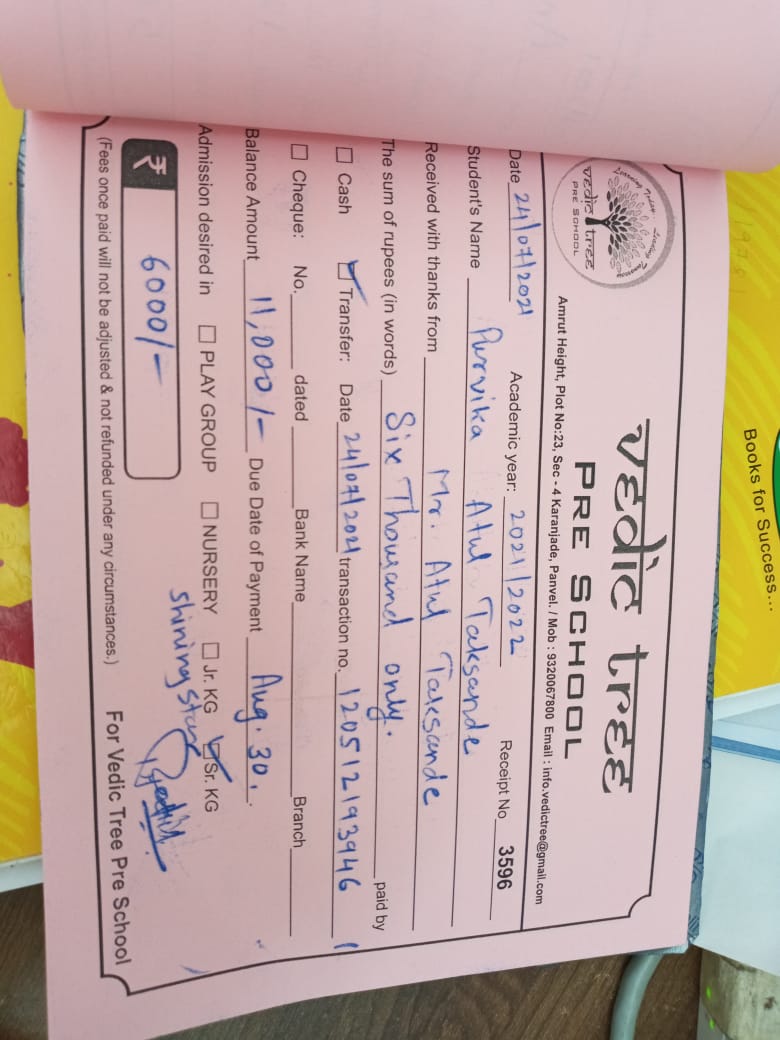 Books for Success...
Learning Today... Leading Tomorrow
vedic tree
PRE SCHOOL
vedic tree
PRE SCHOOL
Amrut Height, Plot No:23, Sec - 4 Karanjade, Panvel. / Mob : 9320067800 Email : info.vedictree@gmail.com
Date 24/07/2021 Academic year: 2021/2022 Receipt No 3596
Student's Name Purvika Atul Taksande
Received with thanks from Mr. Atul Taksande
The sum of rupees (in words) Six Thousand only. paid by
Cash Transfer: Date 24/07/2021 transaction no. 120512193946
Cheque: No. dated Bank Name Branch
Balance Amount 11,000/- Due Date of Payment Aug. 30.
Admission desired in PLAY GROUP NURSERY Jr. KG Sr. KG
Shining Star
₹ 6000/-
(Fees once paid will not be adjusted & not refunded under any circumstances.) For Vedic Tree Pre School